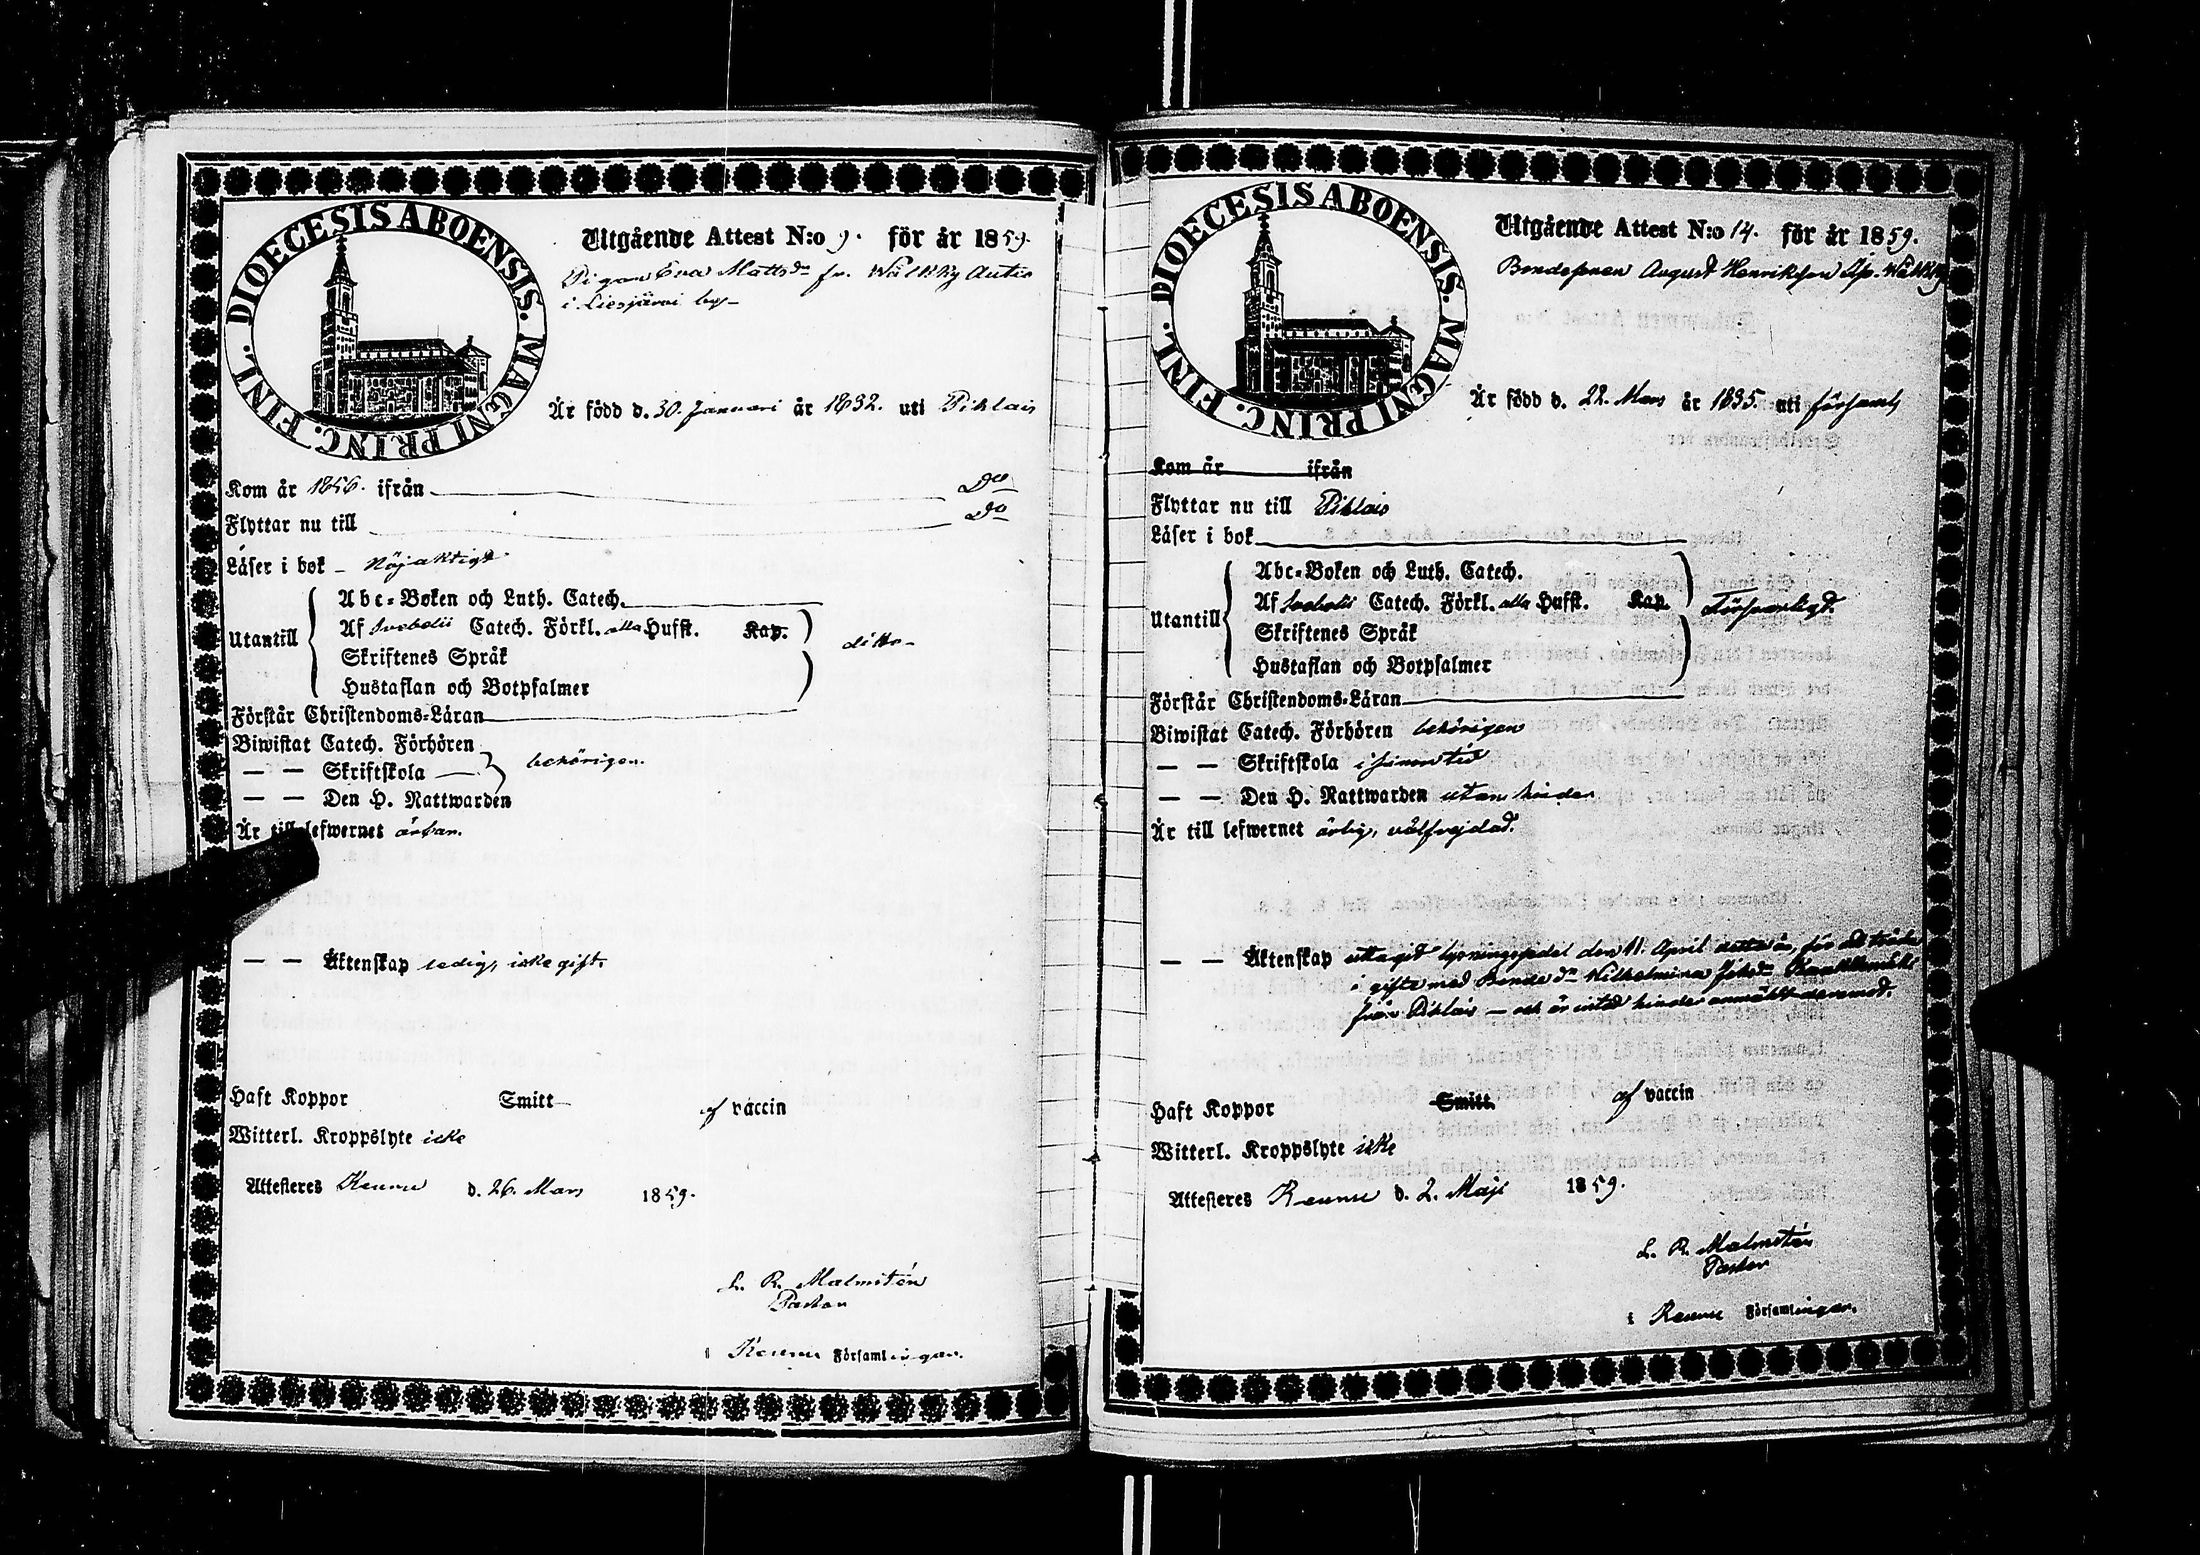 DIOECESIS ABOENSIS. MAGNI PRINC. FINL.
Utgående Attest N:o 9. för år 1859.
Pigan Eva Mattsdr fr. Wälkky Autio
i Liesjärvi by
Är född d. 30. Januari år 1832. uti Pihlais
Kom år 1856. ifrån Do
Flyttar nu till Do
Läser i bok Nöjaktigt
Abc-Boken och Luth. Catech.
Utantill Af Svebelii Catech. Förkl. alla Hufst. Kap. ditto
Skriftenes Språk
Hustaflan och Botpsalmer
Förstår Christendoms-Läran
Biwistat Catech. Förhören
— — Skriftskola behörigen.
— — Den H. Nattwarden
Är till lefwernet ärbar.
— — Äktenskap ledig, icke gift.
Haft Koppor Smitt af vaccin
Witterl. Kroppslyte icke
Attesteres Keuru d. 26. Mars 1859.
L. R. Malmstén
Pastor
i Keuru Församlingar.
DIOECESIS ABOENSIS. MAGNI PRINC. FINL.
Utgående Attest N:o 14. för år 1859.
Bondesonen August Henriksson Ap. Wälkky
Är född d. 22. Mars år 1835. uti församl
Kom år ifrån
Flyttar nu till Pihlais
Läser i bok
Abc-Boken och Luth. Catech.
Utantill Af Svebelii Catech. Förkl. alla Hufst. Kap. Försvarligt.
Skriftenes Språk
Hustaflan och Botpsalmer
Förstår Christendoms-Läran
Biwistat Catech. Förhören behörigen
— — Skriftskola i sinom tid
— — Den H. Nattwarden utan hinder
Är till lefwernet ärlig, välfrejdad.
— — Äktenskap uttagit lysningssedel den 11. April detta år, för att träda
i gifte med Bondedr Wilhelmina Johsdr
från Pihlais — och är intet hinder anmäldt deremod.
Haft Koppor Smitt. af vaccin
Witterl. Kroppslyte icke
Attesteres Keuru d. 2. Maji 1859.
L. R. Malmstén
Pastor
i Keuru Församlingar.